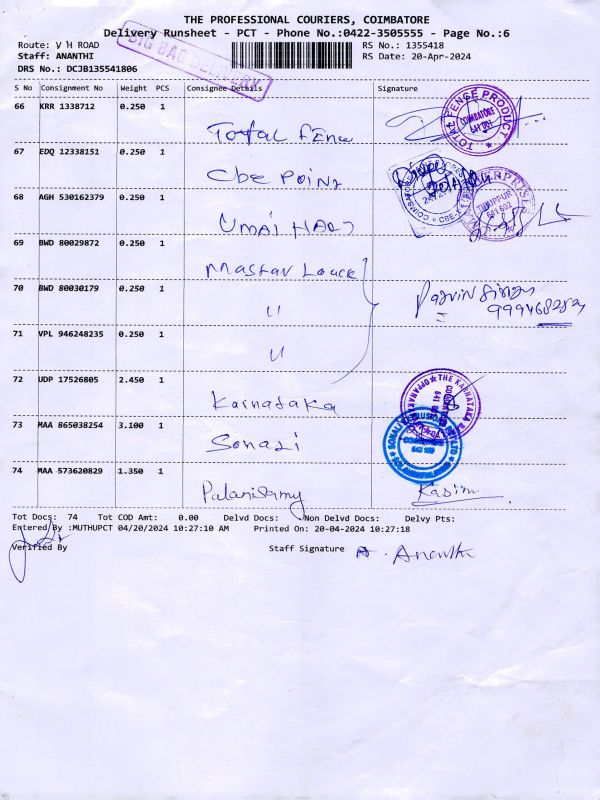 THE PROFESSIONAL COURIERS, COIMBATORE
Delivery Runsheet - PCT - Phone No.:0422-3505555 - Page No.:6
Route: V H ROAD
RS No.: 1355418
Staff: ANANTHI
RS Date: 20-Apr-2024
DRS No.: DCJB135541806
BIG BAG DELIVERY
S No Consignment No Weight PCS Consignee Details Signature
66 KRR 1338712 0.250 1
Total Fence
TOTAL FENCE PRODUCT
COIMBATORE
641 001
67 EDQ 12338151 0.250 1
Cbe Point
68 AGH 530162379 0.250 1
TIRUPPUR
641 602
69 BWD 80029872 0.250 1
70 BWD 80030179 0.250 1
"
71 VPL 946248235 0.250 1
"
72 UDP 17526805 2.450 1
Karnataka
THE KARNATAKA BANK LTD
73 MAA 865038254 3.100 1
74 MAA 573620829 1.350 1
Palanisamy
Kasim
Tot Docs: 74 Tot COD Amt: 0.00 Delvd Docs: Non Delvd Docs: Delvy Pts:
Entered By :MUTHUPCT 04/20/2024 10:27:10 AM Printed On: 20-04-2024 10:27:18
Verified By
Staff Signature A. Ananthi